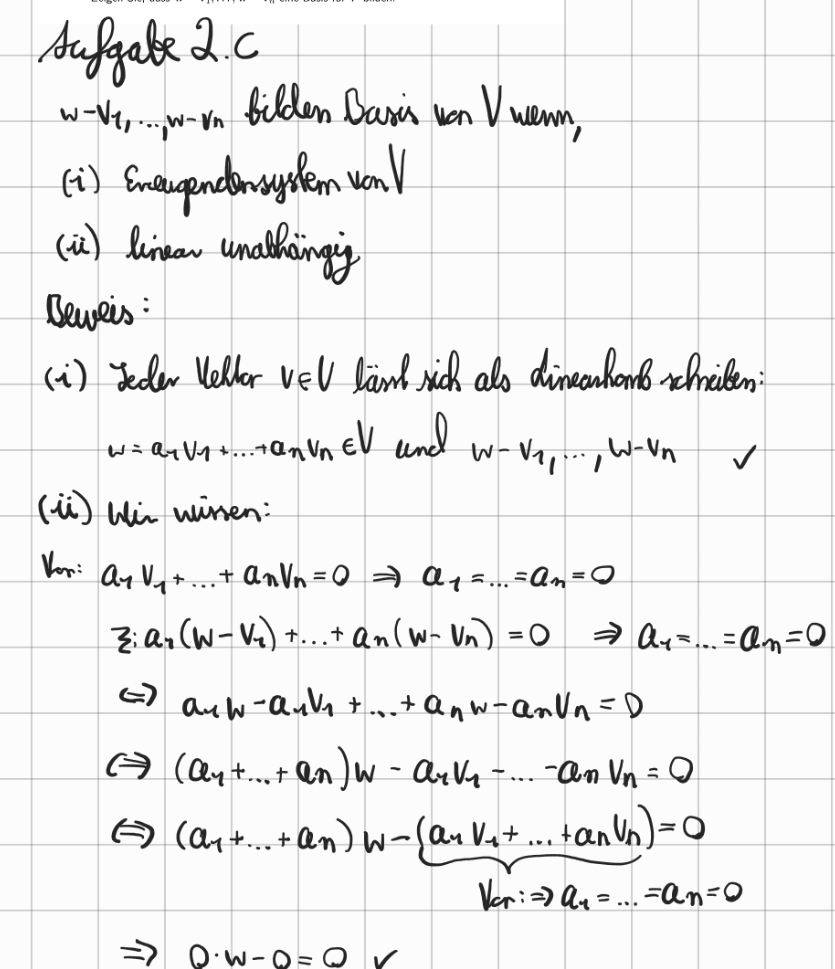 Zeigen Sie, dass w − v₁, ..., w − vₙ eine Basis für V bilden.
Aufgabe 2.c
w-v₁,...,w-vₙ bilden Basis von V wenn,
(i) Erzeugendensystem von V
(ii) linear unabhängig
Beweis:
(i) Jeder Vektor v∈V lässt sich als Linearkomb schreiben:
w = a₁v₁ +...+ aₙvₙ ∈V und w-v₁,...,w-vₙ ✓
(ii) Wir wissen:
Vor: a₁v₁ +...+ aₙvₙ = 0 ⇒ a₁ =...= aₙ = 0
Z: a₁(w-v₁) +...+ aₙ(w-vₙ) = 0 ⇒ a₁ =...= aₙ = 0
⇔ a₁w - a₁v₁ +...+ aₙw - aₙvₙ = 0
⇔ (a₁ +...+ aₙ)w - a₁v₁ - ... - aₙvₙ = 0
⇔ (a₁ +...+ aₙ)w - (a₁v₁ +...+ aₙvₙ) = 0
Vor: ⇒ a₁ = ... = aₙ = 0
⇒ 0·w - 0 = 0 ✓